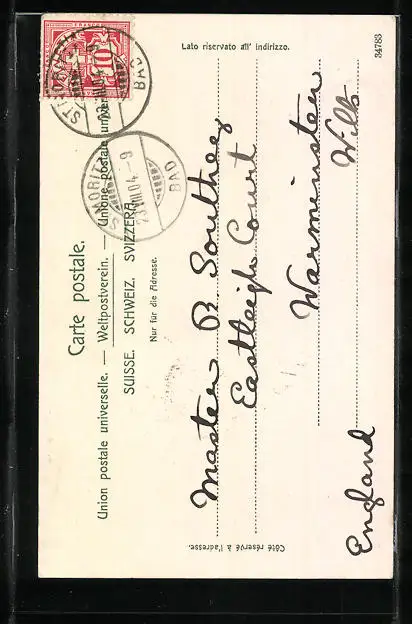 Carte postale.
Union postale universelle. — Weltpostverein. — Unione postale universale
SUISSE. SCHWEIZ. SVIZZERA.
Nur für die Adresse.
Côté réservé à l'adresse.
Lato riservato all' indirizzo.
34783
10
BAD
ST. MORITZ
23.VIII.04.-9
BAD
Master B Southey
Eastleigh Court
Warminster
Wilts
England